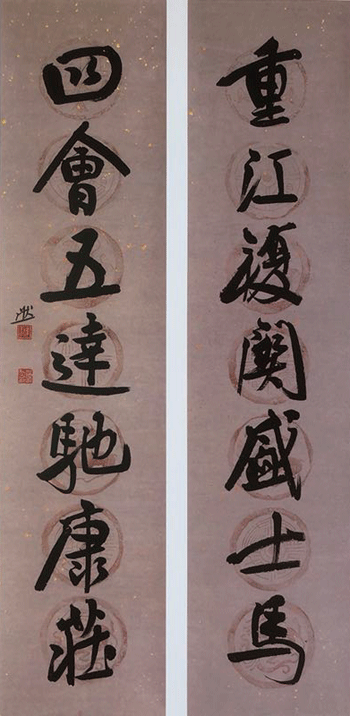 重江複關盛士馬
四會五達馳康莊